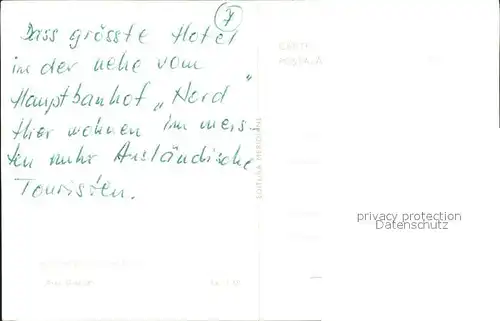 7
Dass grösste Hotel
in der nehe vom
Hauptbanhof „Nord"
Hier wohnen im meis-
ten nuhr Ausländische
Touristen.
POSTALĂ
EDITURA MERIDIANE
privacy protection
Datenschutz